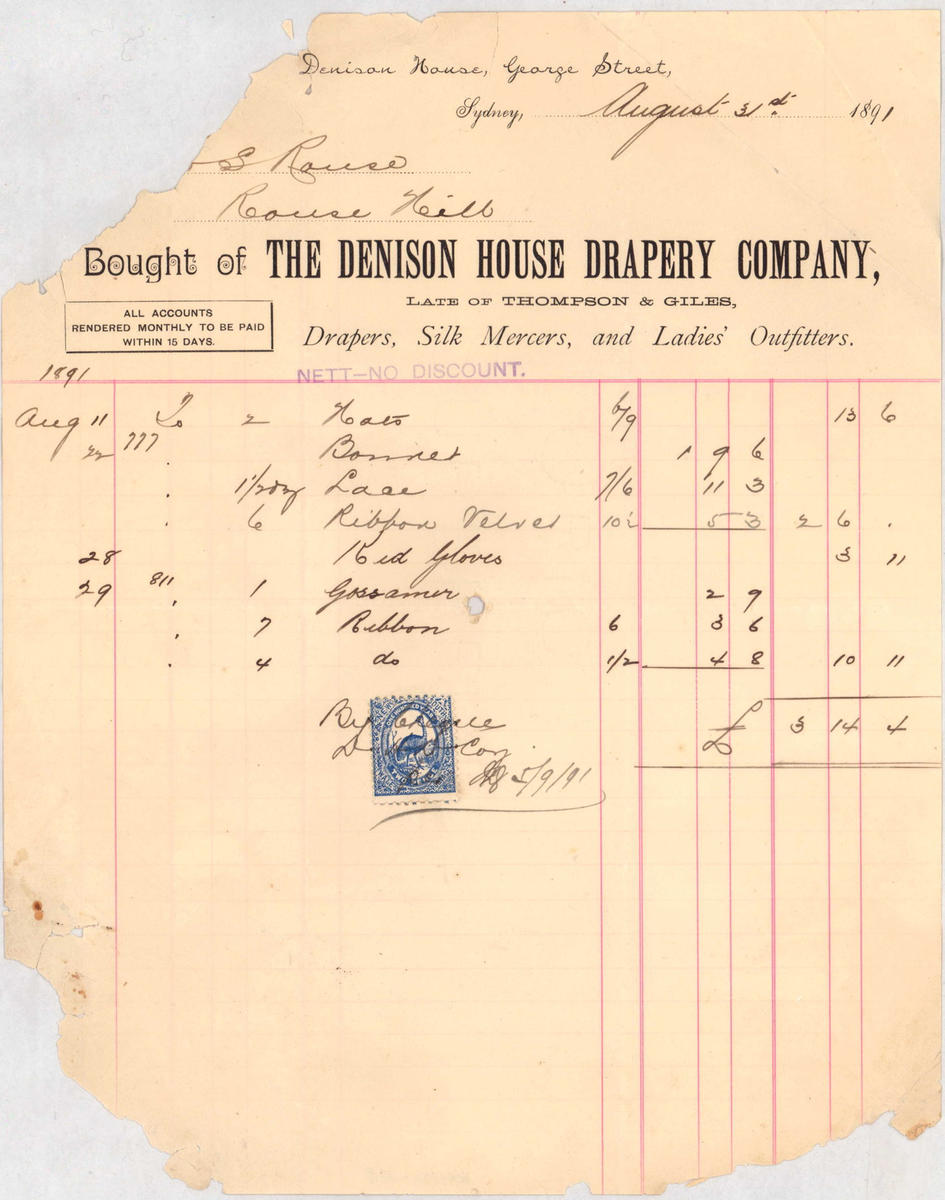 Denison House, George Street,
Sydney, August 31st. 1891
S Rouse
Rouse Hill
Bought of THE DENISON HOUSE DRAPERY COMPANY,
LATE OF THOMPSON & GILES,
ALL ACCOUNTS
RENDERED MONTHLY TO BE PAID
WITHIN 15 DAYS.
Drapers, Silk Mercers, and Ladies' Outfitters.
1891
NETT—NO DISCOUNT.
Aug 11 To 2 Hats 6/9 13 6
22 777 Bonnet 1 9 6
1 1/2 dz Lace 7/6 11 3
6 Ribbon Velvet 10½ 5 3 2 6 .
28 Kid Gloves 3 11
29 811 1 Gossamer 2 9
7 Ribbon 6 3 6
4 do 1/2 4 8 10 11
By
£ 3 14 4
Coy
5/9/91